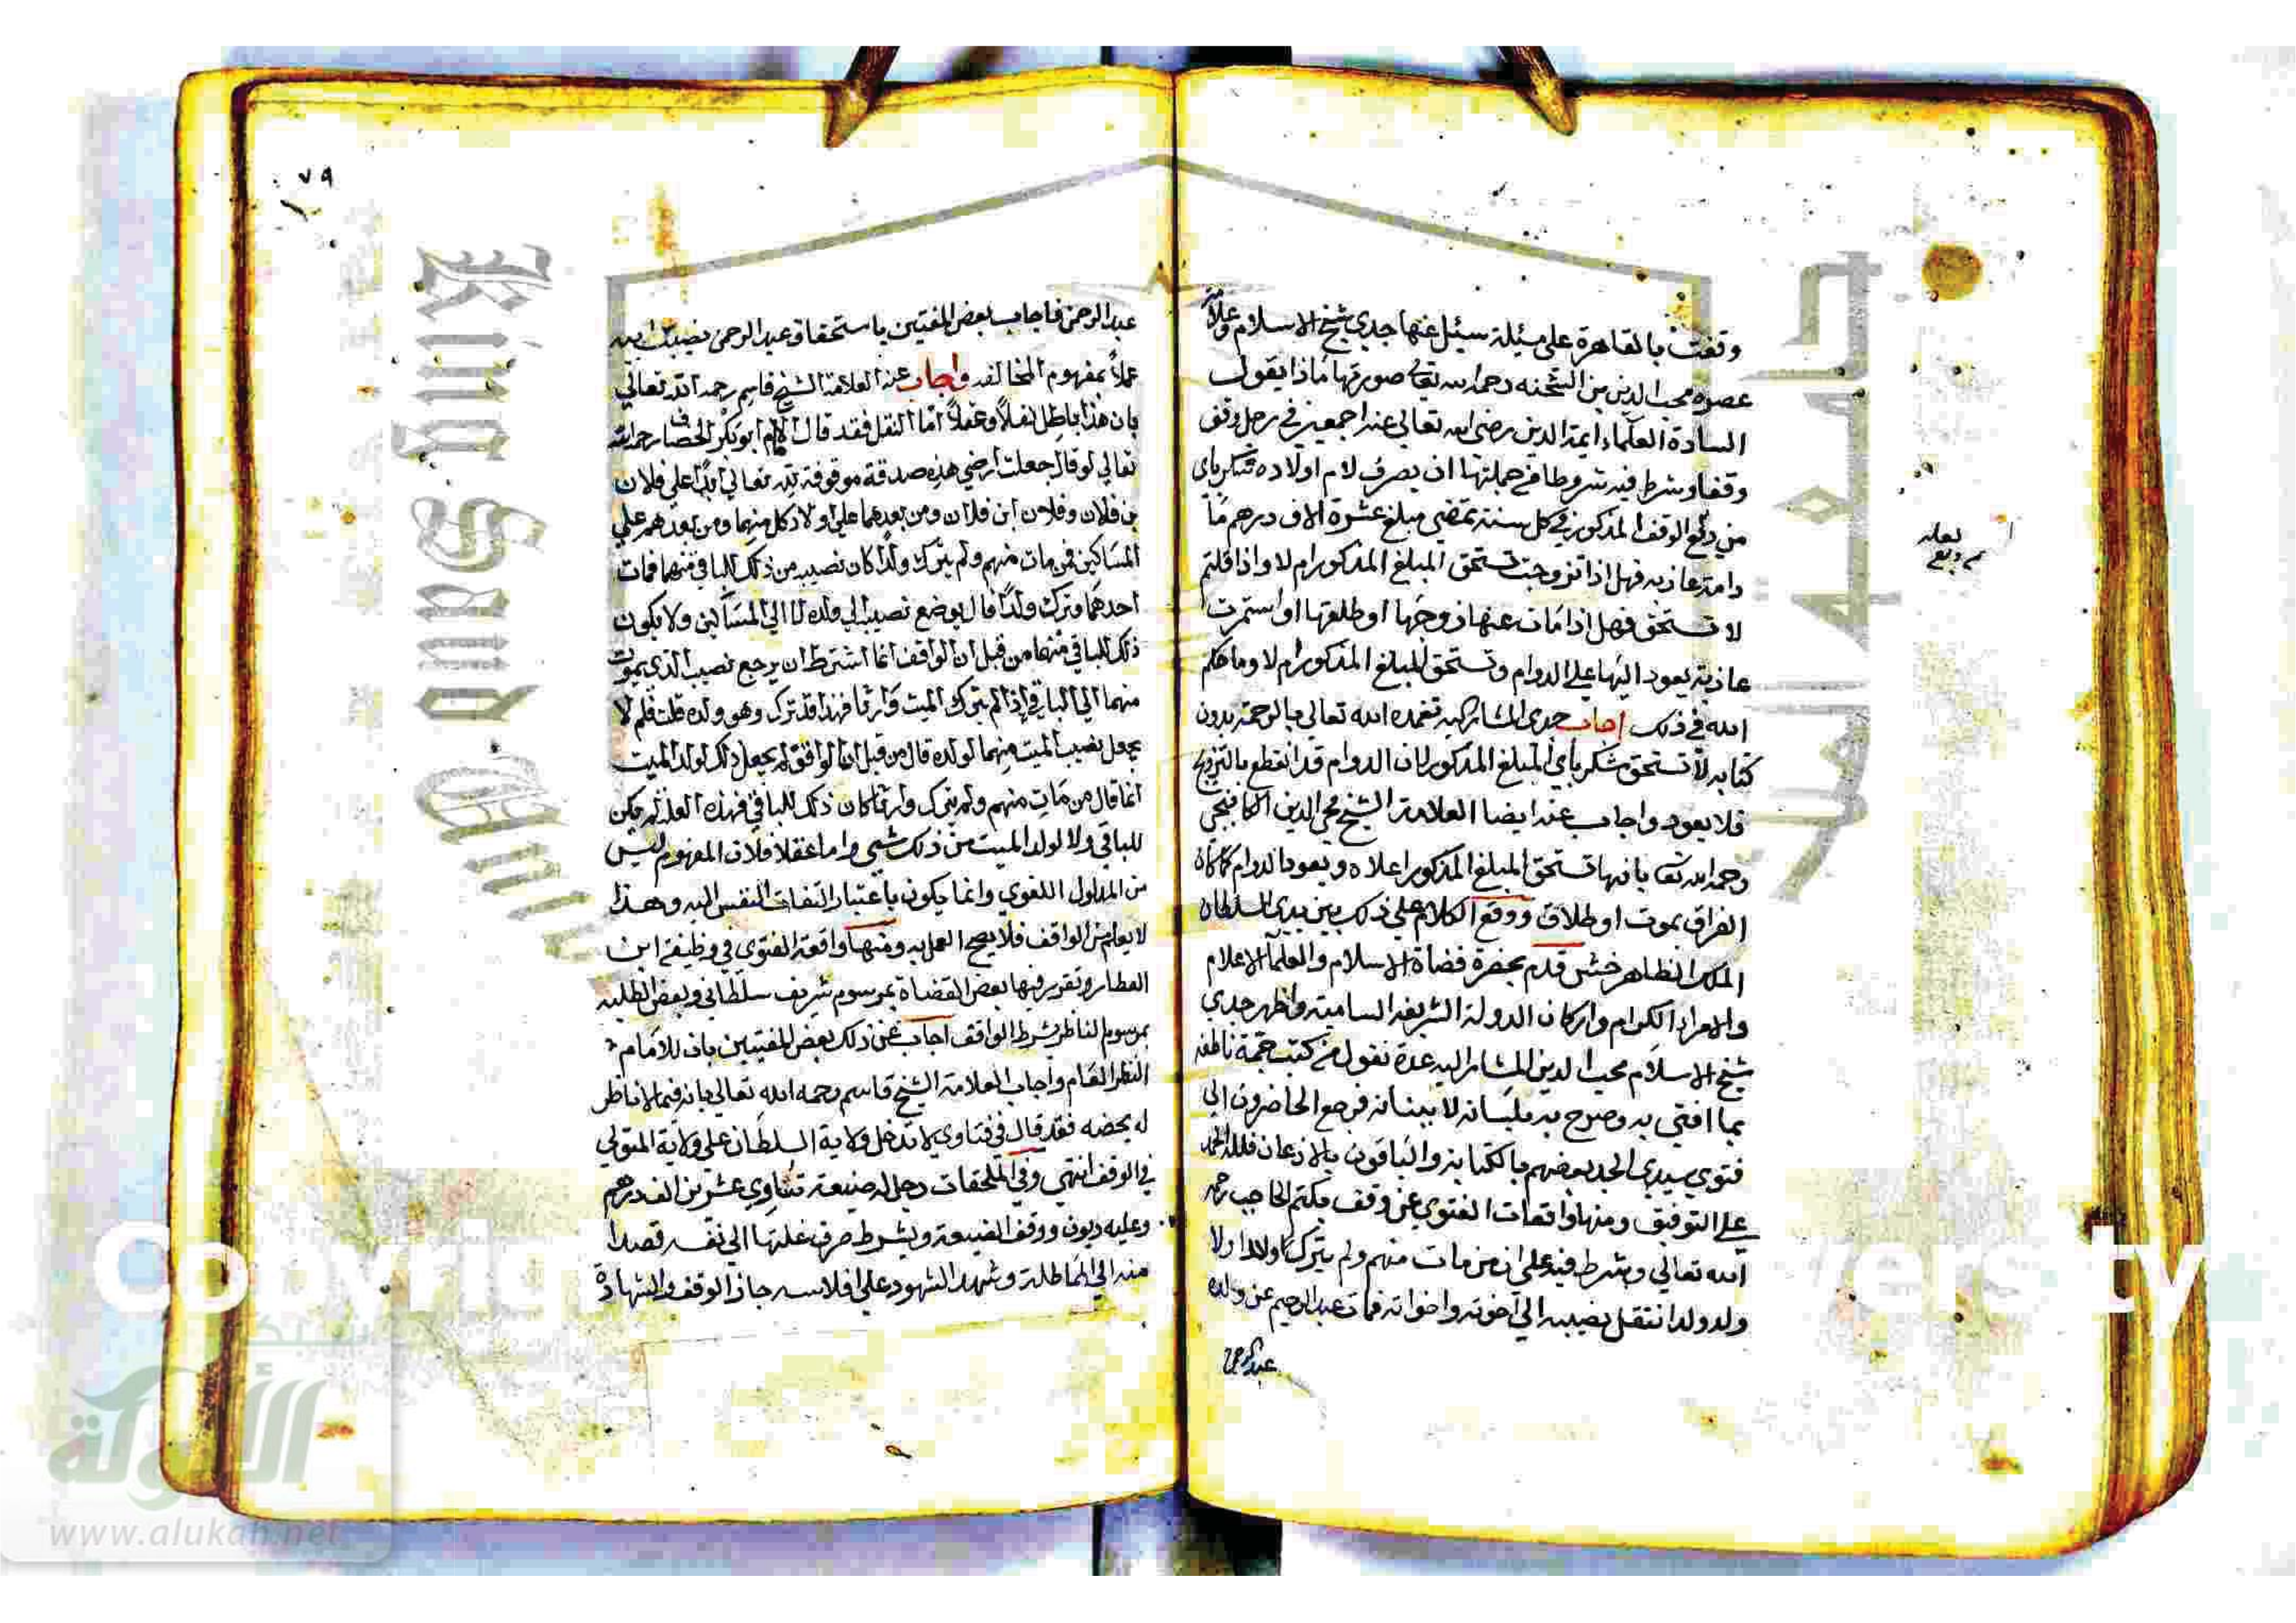 وقفت بالقاهرة على مسئلة سئل عنها جدي شيخ الاسلام وعلامة
عصره محب الدين بن الشحنه رحمه الله تعالى صورتها ماذا يقول
السادة العلماء ايمة الدين رضي الله تعالى عنهم اجمعين في رجل وقف
وقفا وشرط فيه شروطا في جملتها ان يصرف لام اولاده شكرباي
من ريع الوقف المذكور في كل سنة تمضي مبلغ عشرة الاف درهم ما
دامت عازبه فهل اذا تزوجت تستحق المبلغ المذكور ام لا واذا قلتم
لا تستحق فهل اذا مات عنها زوجها او طلقها او استمرت
عازبة يعود اليها على الدوام وتستحق المبلغ المذكور ام لا وما حكم
الله في ذلك اجاب جدي المشار اليه تغمده الله تعالى بالرحمة بدون
كتابه لا تستحق شكرباي المبلغ المذكور لان الدوام قد انقطع بالتزويج
فلا يعود واجاب عنه ايضا العلامة الشيخ محي الدين الكافيجي
رحمه الله تعا بانها تستحق المبلغ المذكور اعلاه ويعود الدوام كما كان
الفراق بموت او طلاق ووقع الكلام على ذلك بين يدي السلطان
الملك الظاهر خشقدم بحضرة قضاة الاسلام والعلماء الاعلام
والامراء الكرام واركان الدولة الشريفة السامية واظهر جدي
شيخ الاسلام محب الدين المشار اليه عدة نقول من كتب جمة ناطقه
بما افتى به وصرح به بلسانه لا ببنانه فرجع الحاضرون الى
فتوى سيدي الجد بعضهم بالكتابة والباقون بالاذعان فلله الحمد
على التوفيق ومنها واقعات الفتوى عن وقف بكتمر الحاجب رحمه
الله تعالى وشرط فيه على ان من مات منهم ولم يترك ولدا ولا
ولد ولد انتقل نصيبه الى اخوته واخواته فمات عبد الرحيم عن ولده
عبد الرحمن
نعله
من ريع
٧٩
عبد الرحمن فاجاب بعض المفتين باستحقاق عبد الرحمن نصيب ابيه
عملاً بمفهوم المخالفه واجاب عنه العلامة الشيخ قاسم رحمه الله تعالى
بان هذا باطل نقلاً وعقلاً اما النقل فقد قال الامام ابو بكر الخصاف رحمه الله
تعالى لو قال جعلت ارضي هذه صدقة موقوفة لله تعالى ابدًا على فلان
بن فلان وفلان ابن فلان ومن بعدهما على اولاد كل منهما ومن بعدهم على
المساكين فمن مات منهم ولم يترك ولدًا كان نصيبه من ذلك للباقي منهما فمات
احدهما وترك ولدًا قال يرجع نصيبه الى المساكين ولا يكون
ذلك للباقي منهما من قبل ان الواقف انما اشترط ان يرجع نصيب الذي يموت
منهما الى الباقي اذا لم يترك الميت وارثا فهذا قد ترك وهو ولده قلت فلم لا
يجعل نصيب الميت منهما لولده قال من قبل ان الواقف لم يجعل ذلك لولد الميت
انما قال من مات منهم ولم يترك وارثا كان ذلك للباقي فهذه العلة لم يكن
للباقي ولا لولد الميت من ذلك شي واما عقلا فلان المفهوم ليس
من المدلول اللغوي وانما يكون باعتبار التفات النفس اليه وهذا
لا يعلم من الواقف فلا يصح العمل به ومنها واقعة الفتوى في وظيفة ابن
العطار وتقرير فيها بعض القضاة بمرسوم شريف سلطاني وبعض الطلبه
بمرسوم الناظر بشرط الواقف اجاب عن ذلك بعض المفتيين بان للامام
النظر العام واجاب العلامة الشيخ قاسم رحمه الله تعالى بانه فيما لا ناظر
له يخصه فقد قال في فتاوى لا تدخل ولاية السلطان على ولاية المتولي
في الوقف انتهى وفي الملحقات رجل له ضيعة تساوي عشرين الف درهم
وعليه ديون ووقف الضيعة وشرط صرف غلتها الى نفسه قصدا
منه الى المماطلة وشهد الشهود على افلاسه جاز الوقف والشهادة
King Saud
جامعة الملك
ersity
شبكة
الألوكة
www.alukah.net